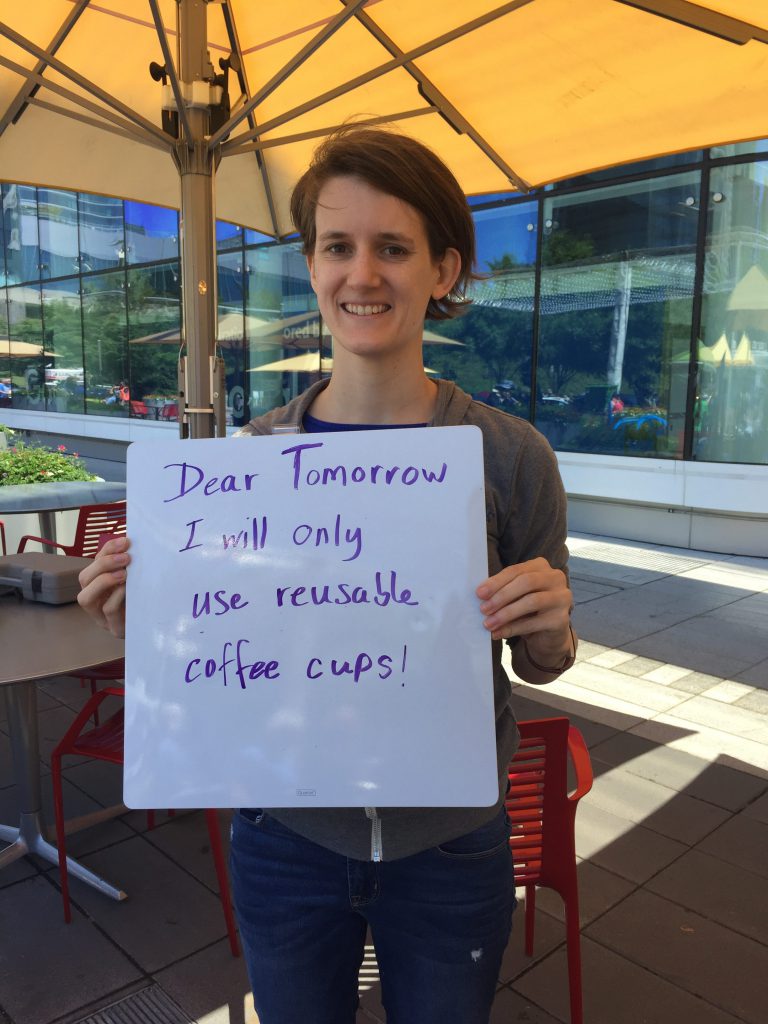 Dear Tomorrow
I will only
use reusable
coffee cups!
ored b